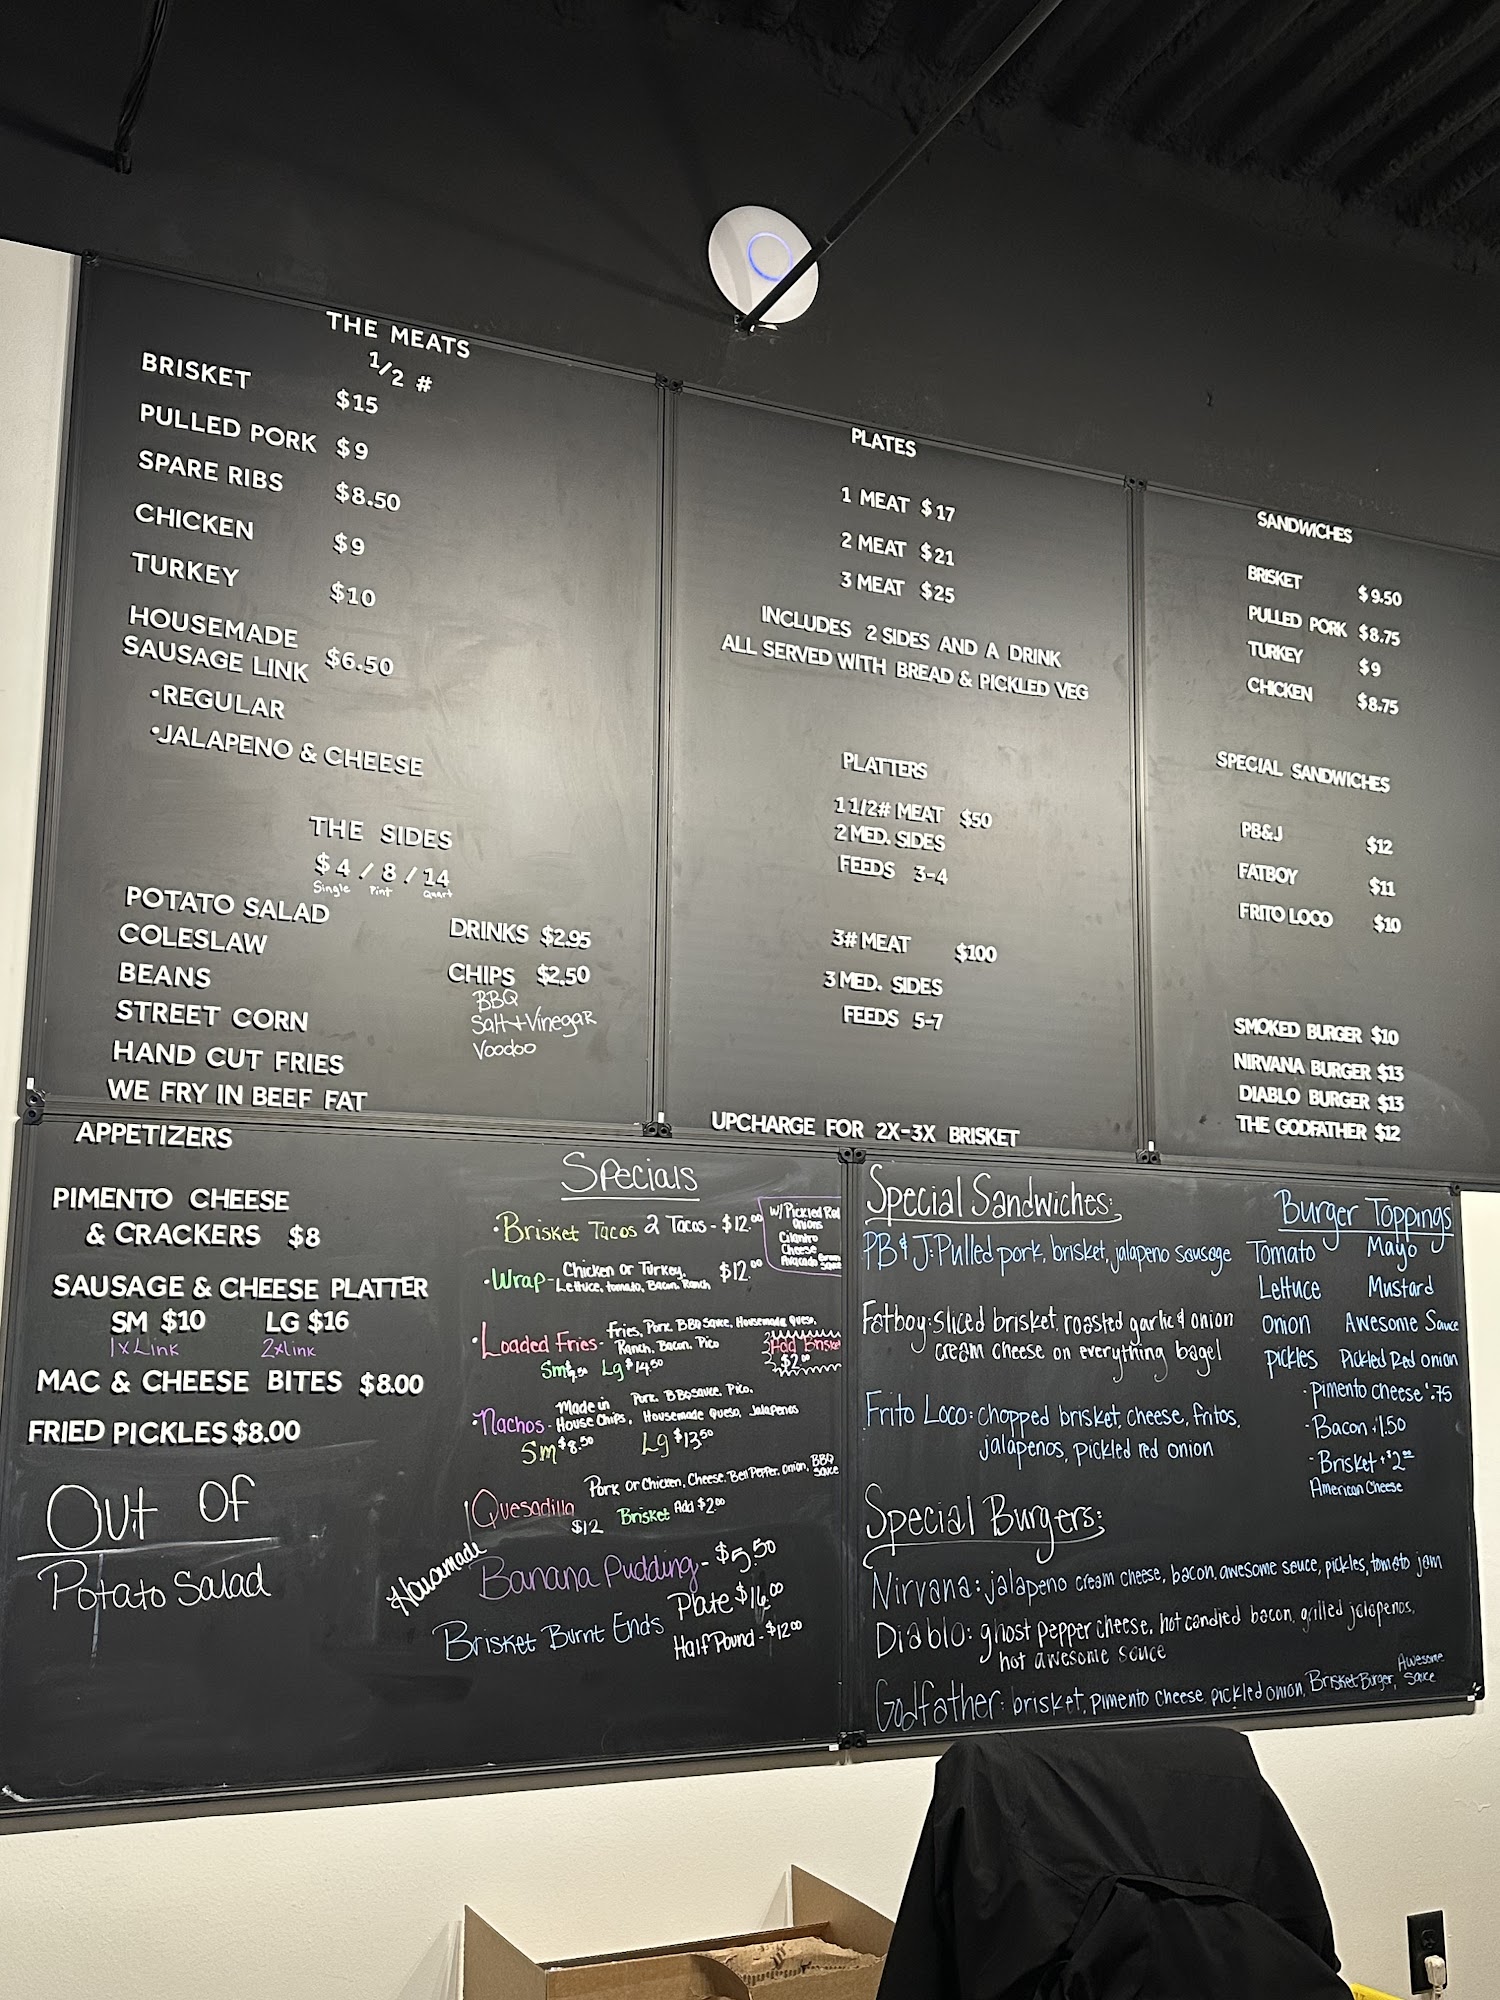 THE MEATS
1/2 #
BRISKET $15
PULLED PORK $9
SPARE RIBS $8.50
CHICKEN $9
TURKEY $10
HOUSEMADE
SAUSAGE LINK $6.50
•REGULAR
•JALAPENO & CHEESE
THE SIDES
$4 / 8 / 14
Single Pint Quart
POTATO SALAD
COLESLAW
BEANS
STREET CORN
HAND CUT FRIES
WE FRY IN BEEF FAT
DRINKS $2.95
CHIPS $2.50
BBQ
Salt+Vinegar
Voodoo
PLATES
1 MEAT $17
2 MEAT $21
3 MEAT $25
INCLUDES 2 SIDES AND A DRINK
ALL SERVED WITH BREAD & PICKLED VEG
PLATTERS
1 1/2# MEAT $50
2 MED. SIDES
FEEDS 3-4
3# MEAT $100
3 MED. SIDES
FEEDS 5-7
UPCHARGE FOR 2X-3X BRISKET
SANDWICHES
BRISKET $9.50
PULLED PORK $8.75
TURKEY $9
CHICKEN $8.75
SPECIAL SANDWICHES
PB&J $12
FATBOY $11
FRITO LOCO $10
SMOKED BURGER $10
NIRVANA BURGER $13
DIABLO BURGER $13
THE GODFATHER $12
APPETIZERS
PIMENTO CHEESE
& CRACKERS $8
SAUSAGE & CHEESE PLATTER
SM $10 LG $16
1xLink 2xlink
MAC & CHEESE BITES $8.00
FRIED PICKLES $8.00
Out Of
Potato Salad
Specials
•Brisket Tacos 2 Tacos - $12.00
W/ Pickled Red
Onions
Cilantro
Cheese
Avacado
Sauce
•Wrap- Chicken Or Turkey, $12.00
Lettuce, tomato, Bacon, Ranch
•Loaded Fries- Fries, Pork, BBQ Sauce, Housemade Queso,
Ranch, Bacon, Pico
Sm Lg $14.50
Add Brisket
$2.00
•Nachos- Made in House Chips, Pork, BBQ Sauce, Pico,
Housemade Queso, Jalapenos
Sm $8.50 Lg $13.50
Quesadilla Pork Or Chicken, Cheese, Bell Pepper, Onion, BBQ Sauce
$12 Brisket Add $2.00
Housemade
Banana Pudding - $5.50
Brisket Burnt Ends Plate $16.00
Half Pound - $12.00
Special Sandwiches:
PB & J: Pulled pork, brisket, jalapeno sausage
Fatboy: Sliced brisket, roasted garlic & onion
cream cheese on everything bagel
Frito Loco: chopped brisket, cheese, fritos,
jalapenos, pickled red onion
Burger Toppings
Tomato Mayo
Lettuce Mustard
Onion Awesome Sauce
pickles Pickled Red onion
- Pimento cheese .75
- Bacon +1.50
- Brisket +$2.00
American Cheese
Special Burgers:
Nirvana: jalapeno cream cheese, bacon, awesome sauce, pickles, tomato jam
Diablo: ghost pepper cheese, hot candied bacon, grilled jalapenos,
hot awesome sauce
Godfather: brisket, pimento cheese, pickled onion, Brisket Burger, Awesome Sauce